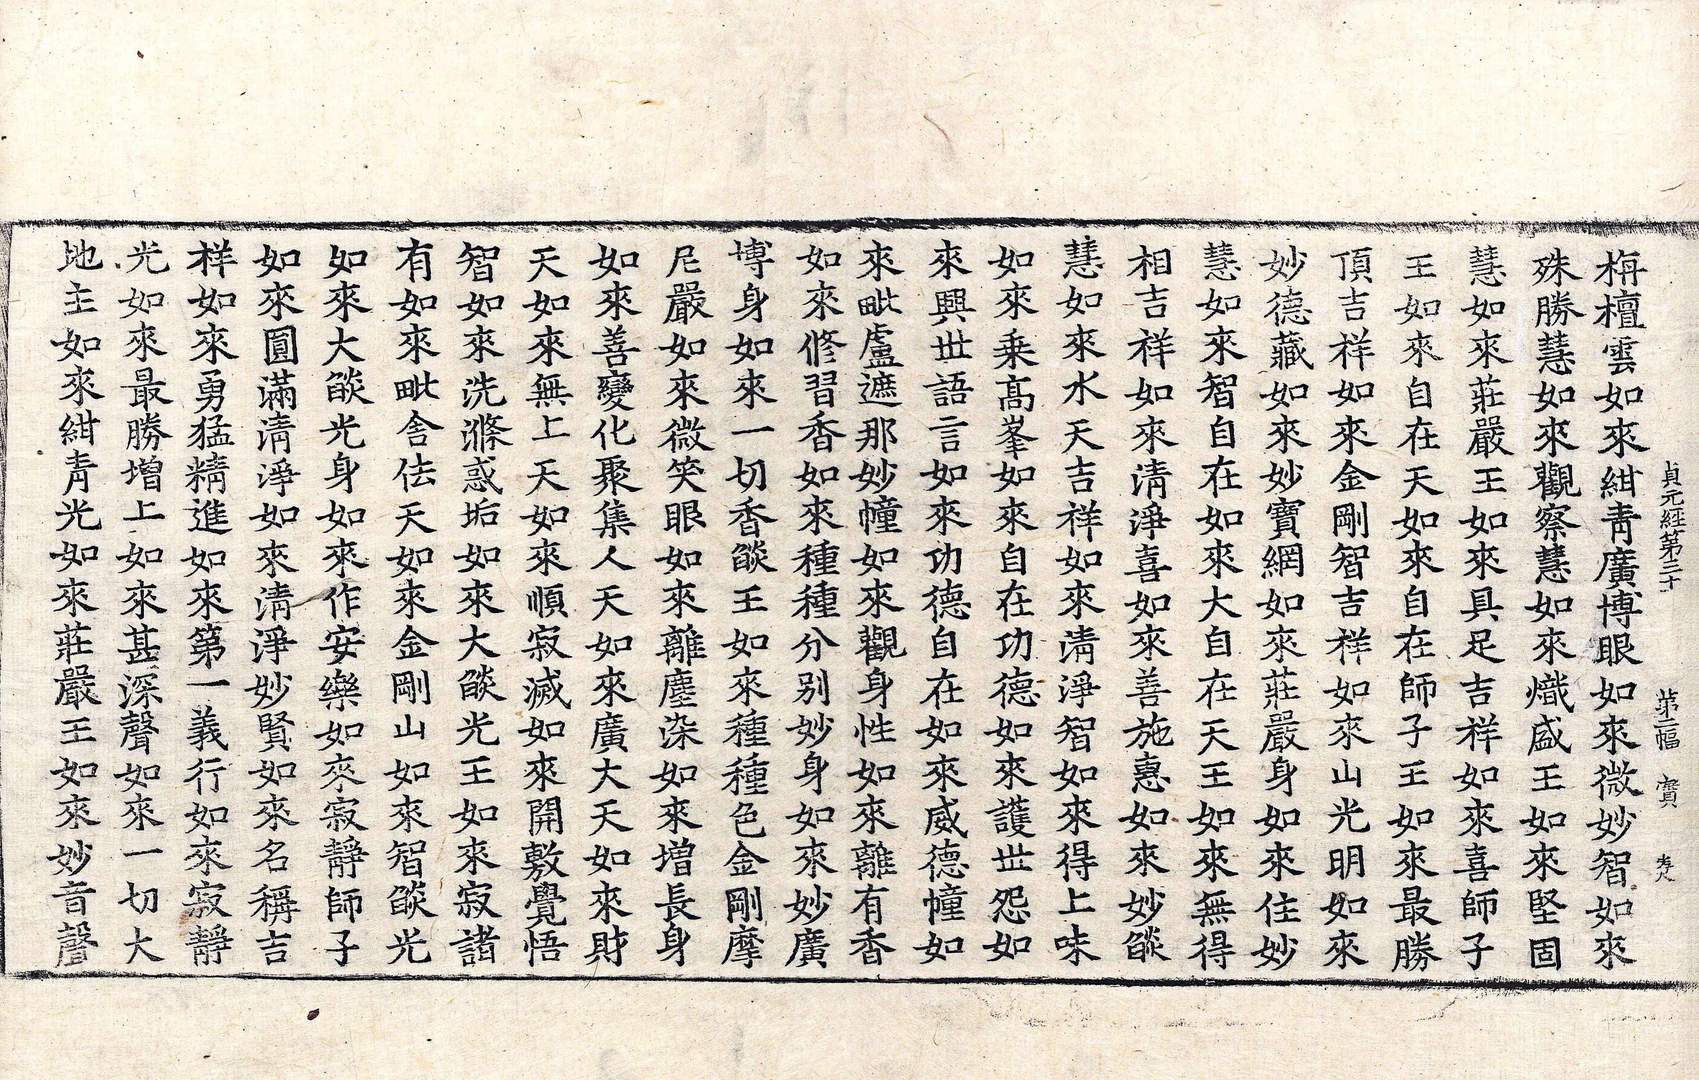 貞元經第二十　第二幅　寳　
栴檀雲如來紺青廣博眼如來微妙智如來
殊勝慧如來觀察慧如來熾盛王如來堅固
慧如來莊嚴王如來具足吉祥如來喜師子
王如來自在天如來自在師子王如來最勝
頂吉祥如來金剛智吉祥如來山光明如來
妙德藏如來妙寶網如來莊嚴身如來住妙
慧如來智自在如來大自在天王如來無得
相吉祥如來清淨喜如來善施惠如來妙燄
慧如來水天吉祥如來清淨智如來得上味
如來乗髙峯如來自在功德如來護世怨如
來興世語言如來功德自在如來威德幢如
來毗盧遮那妙幢如來觀身性如來離有香
如來修習香如來種種分別妙身如來妙廣
博身如來一切香燄王如來種種色金剛摩
尼嚴如來微笑眼如來離塵染如來增長身
如來善變化聚集人天如來廣大天如來財
天如來無上天如來順寂滅如來開敷覺悟
智如來洗滌惑垢如來大燄光王如來寂諸
有如來毗舍佉天如來金剛山如來智燄光
如來大燄光身如來作安樂如來寂靜師子
如來圓滿清淨如來清淨妙賢如來名稱吉
祥如來勇猛精進如來第一義行如來寂靜
光如來最勝增上如來甚深聲如來一切大
地主如來紺青光如來莊嚴王如來妙音聲